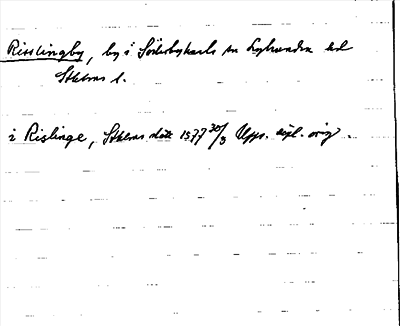 Risslingby, by i Söderbykarls sn Lyhundra hd
Sthlms l.
i Rislinge, Sthlms slott 1577 30/3 Upps. dipl. orig.